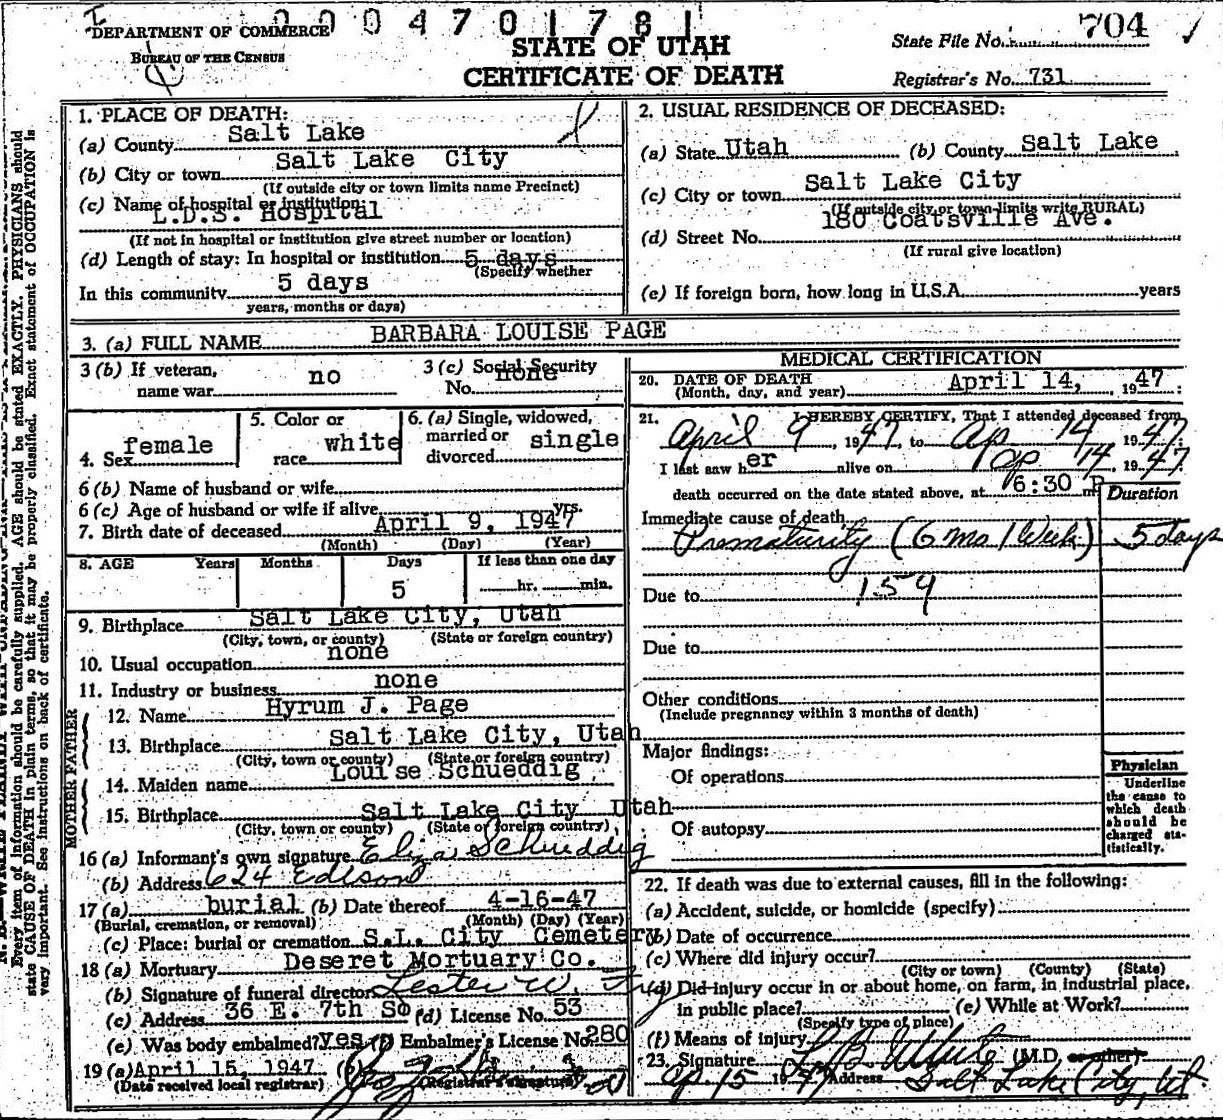 I 0 0 0 4 7 0 1 7 8 1 704
DEPARTMENT OF COMMERCE
BUREAU OF THE CENSUS
STATE OF UTAH
CERTIFICATE OF DEATH
State File No.
Registrar's No. 731
1. PLACE OF DEATH:
(a) County Salt Lake
(b) City or town Salt Lake City
(If outside city or town limits name Precinct)
(c) Name of hospital or institution:
L.D.S. Hospital
(If not in hospital or institution give street number or location)
(d) Length of stay: In hospital or institution 5 days
(Specify whether
In this community 5 days
years, months or days)
2. USUAL RESIDENCE OF DECEASED:
(a) State Utah (b) County Salt Lake
(c) City or town Salt Lake City
(If outside city or town limits write RURAL)
(d) Street No. 180 Coatsville Ave.
(If rural give location)
(e) If foreign born, how long in U.S.A. years
3. (a) FULL NAME BARBARA LOUISE PAGE
3 (b) If veteran,
name war no
3 (c) Social Security
No. none
4. Sex female
5. Color or
race white
6. (a) Single, widowed,
married or
divorced single
6 (b) Name of husband or wife
6 (c) Age of husband or wife if alive yrs.
7. Birth date of deceased April 9, 1947
(Month) (Day) (Year)
8. AGE Years Months Days If less than one day
5 hr. min.
9. Birthplace Salt Lake City, Utah
(City, town, or county) (State or foreign country)
10. Usual occupation none
11. Industry or business none
FATHER
12. Name Hyrum J. Page
13. Birthplace Salt Lake City, Utah
(City, town or county) (State or foreign country)
MOTHER
14. Maiden name Louise Schueddig
15. Birthplace Salt Lake City Utah
(City, town or county) (State or foreign country)
16 (a) Informant's own signature Eliza Schueddig
(b) Address 624 Edison
17 (a) burial (b) Date thereof 4-16-47
(Burial, cremation, or removal) (Month) (Day) (Year)
(c) Place: burial or cremation S.L. City Cemetery
18 (a) Mortuary Deseret Mortuary Co.
(b) Signature of funeral director Lester W.
(c) Address 36 E. 7th So (d) License No. 53
(e) Was body embalmed? yes (f) Embalmer's License No. 280
19 (a) April 15, 1947 (b)
(Date received local registrar) (Registrar's signature)
MEDICAL CERTIFICATION
20. DATE OF DEATH
(Month, day, and year) April 14, 1947
21. I HEREBY CERTIFY, That I attended deceased from
April 9, 1947, to Ap 14 1947
I last saw her alive on Ap 14 1947
death occurred on the date stated above, at 6:30 P m
Duration
Immediate cause of death
Prematurity (6 mo 1 Week) 5 days
Due to 159
Due to
Other conditions
(Include pregnancy within 3 months of death)
Major findings:
Of operations
Of autopsy
Physician
Underline
the cause to
which death
should be
charged sta-
tistically.
22. If death was due to external causes, fill in the following:
(a) Accident, suicide, or homicide (specify)
(b) Date of occurrence
(c) Where did injury occur?
(City or town) (County) (State)
(d) Did injury occur in or about home, on farm, in industrial place,
in public place? (e) While at Work?
(Specify type of place)
(f) Means of injury
23. Signature L B White (M.D. or other)
Ap. 15 1947 Address Salt Lake City, Ut.
Every item of information should be carefully supplied. AGE should be stated EXACTLY. PHYSICIANS should
state CAUSE OF DEATH in plain terms, so that it may be properly classified. Exact statement of OCCUPATION is
very important. See instructions on back of certificate.